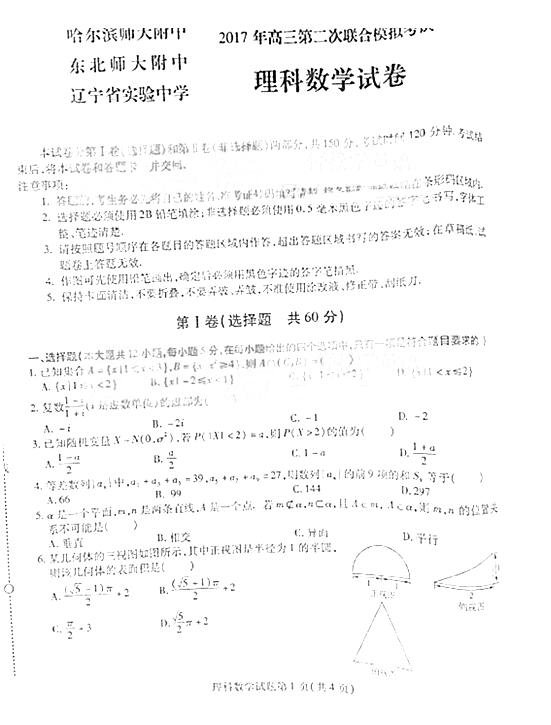 哈尔滨师大附中
东北师大附中
辽宁省实验中学
2017年高三第二次联合模拟考试
理科数学试卷
本试卷分第Ⅰ卷(选择题)和第Ⅱ卷(非选择题)两部分,共150分,考试时间120分钟,考试结
束后,将本试卷和答题卡一并交回.
注意事项:
1. 答题前,考生务必先将自己的姓名、准考证号码填写清楚 条形码区域内.
2. 选择题必须使用2B铅笔填涂;非选择题必须使用0.5毫米黑色字迹的签字笔书写,字体工
整、笔迹清楚.
3. 请按照题号顺序在各题目的答题区域内作答,超出答题区域书写的答案无效;在草稿纸、试
题卷上答题无效.
4. 作图可先使用铅笔画出,确定后必须用黑色字迹的签字笔描黑.
5. 保持卡面清洁,不要折叠,不要弄破、弄皱,不准使用涂改液、修正带、刮纸刀.
第Ⅰ卷(选择题 共60分)
一、选择题(本大题共12小题,每小题5分,在每小题给出的四个选项中,只有一项是符合题目要求的)
1. 已知集合A={x|1<x<3},B={x|x²≥4},则A∩( )=( )
A. {x|1≤x<2} B. {x|-2≤x<1} D. {x|1<x≤2}
2. 复数(1-i)/(1+i)(i是虚数单位)的虚部为( )
A. -i B. -2i C. -1 D. -2
3. 已知随机变量X~N(0,σ²),若P(|X|<2)=a,则P(X>2)的值为( )
A. (1-a)/2 B. a/2 C. 1-a D. (1+a)/2
4. 等差数列{aₙ}中,a₁+a₄+a₇=39,a₃+a₆+a₉=27,则数列{aₙ}的前9项的和S₉等于( )
A. 66 B. 99 C. 144 D. 297
5. α是一个平面,m,n是两条直线,A是一个点.若m⊄α,n⊂α,且A∈m,A∈α,则m,n的位置关
系不可能是( )
A. 垂直 B. 相交 C. 异面 D. 平行
6. 某几何体的三视图如图所示,其中正视图是半径为1的半圆,
则该几何体的表面积是( )
A. (√5-1)π/2+2 B. (√5+1)π/2+2
C. π/2+3 D. √5/2π+2
1 1
正视图
2
侧视图
俯视图
理科数学试题第1页(共4页)